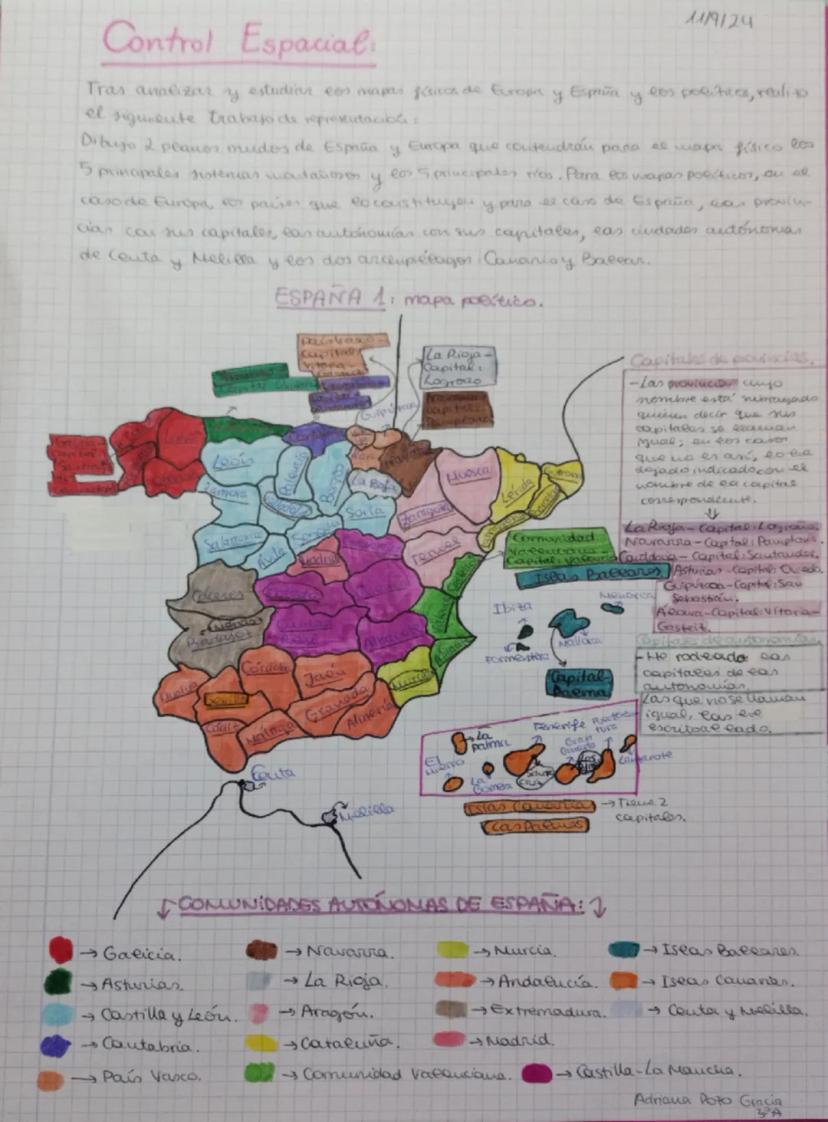 11/9/24
Control Espacial:
Tras analizar y estudiar los mapas físicos de Europa y España y los políticos, realizo
el siguiente trabajo de representación:
Dibujo 2 planos mudos de España y Europa que contendrán para el mapa físico los
5 principales sistemas montañosos y los 5 principales ríos. Para los mapas políticos, en el
caso de Europa, los países que lo constituyen y para el caso de España, las provin-
cias con sus capitales, las autonomías con sus capitales, las ciudades autónomas
de Ceuta y Melilla y los dos archipiélagos: Canario y Balear.
ESPAÑA 1: mapa político.
País Vasco -
Capital:
Vitoria -
La Rioja -
Capital:
Logroño
Navarra
Capital:
Pamplona
Guipúzcoa
Capitales de provincias.
- Las provincias cuyo
nombre está subrayado
quieren decir que sus
capitales se llaman
igual; en los casos
que no es así, lo he
dejado indicado con el
nombre de la capital
correspondiente.
La Rioja - Capital: Logroño
Navarra - Capital: Pamplona.
Cantabria - Capital: Santander.
Asturias - Capital: Oviedo.
Guipúzcoa - Capital: San
Sebastián.
Álava - Capital: Vitoria-
Gasteiz.
Capitales de autonomías
- He rodeado las
capitales de las
autonomías.
Las que no se llaman
igual, las he
escrito al lado.
León
Palencia
Burgos
La Rioja
Navarra
Huesca
Lérida
Zamora
Soria
Zaragoza
Salamanca
Ávila
Segovia
Madrid
Teruel
Comunidad
Valenciana
Capital: Valencia
Islas Baleares
Cáceres
Badajoz
Ciudad
Real
Albacete
Ibiza
Menorca
Mallorca
Formentera
Capital
Palma
Huelva
Sevilla
Córdoba
Jaén
Murcia
Cádiz
Málaga
Granada
Almería
Ceuta
Melilla
El
Hierro
La
Palma
La
Gomera
Tenerife
Gran
Canaria
Lanzarote
Islas Canarias
→ Tiene 2
capitales.
Las Palmas
↓ COMUNIDADES AUTÓNOMAS DE ESPAÑA: ↓
→ Galicia.
→ Navarra.
→ Murcia.
→ Islas Baleares.
→ Asturias.
→ La Rioja.
→ Andalucía.
→ Islas Canarias.
→ Castilla y León.
→ Aragón.
→ Extremadura.
→ Ceuta y Melilla.
→ Cantabria.
→ Cataluña.
→ Madrid.
→ País Vasco.
→ Comunidad Valenciana.
→ Castilla-La Mancha.
Adriana Pozo Gracia
3ºA